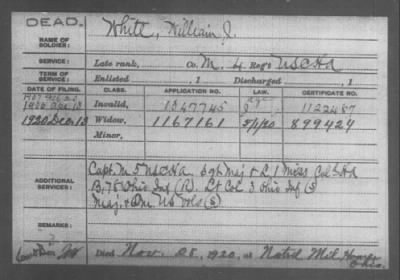 DEAD.
NAME OF SOLDIER: White, William J.
SERVICE: Late rank, Co. M. 4 Reg't U S C Hd
TERM OF SERVICE: Enlisted , 1 Discharged , 1
DATE OF FILING. CLASS. APPLICATION NO. LAW. CERTIFICATE NO.
Invalid, 1347745 1122487
1920 Dec 13 Widow, 1167161 5/1/20 899424
Minor,
ADDITIONAL SERVICES: Capt. M 5 US C H A & Maj + L 1 Miss Col Hd
B, 78 Ohio Inf (R). Lt Col 3 Ohio Inf (S)
Maj. + US Vols (S)
REMARKS:
Died Nov. 25, 1920, at Natnl Mil. Home,
Ohio.